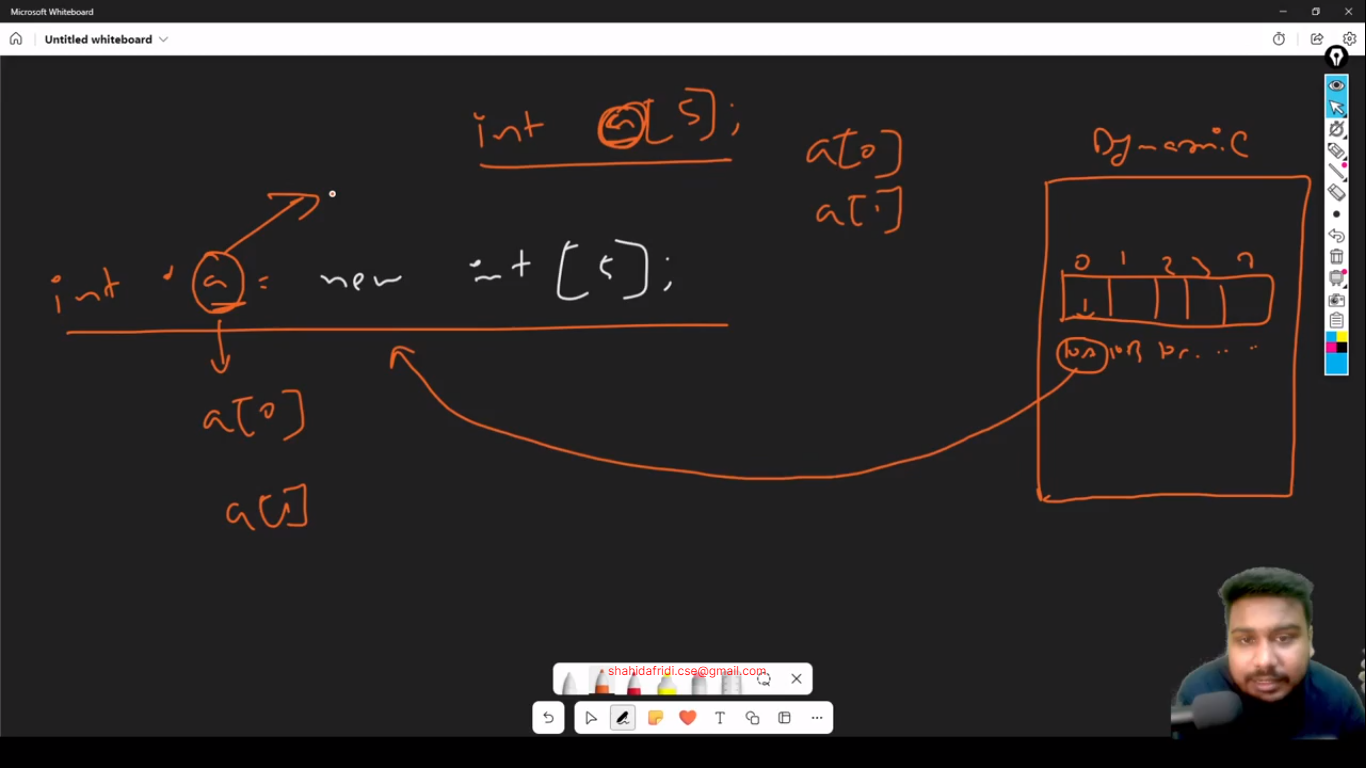 Microsoft Whiteboard
Untitled whiteboard
int a[5];
a[0]
a[1]
Dynamic
int *a = new int [5];
0 1 2 3
a[0]
a[1]
shahidafridi.cse@gmail.com
T